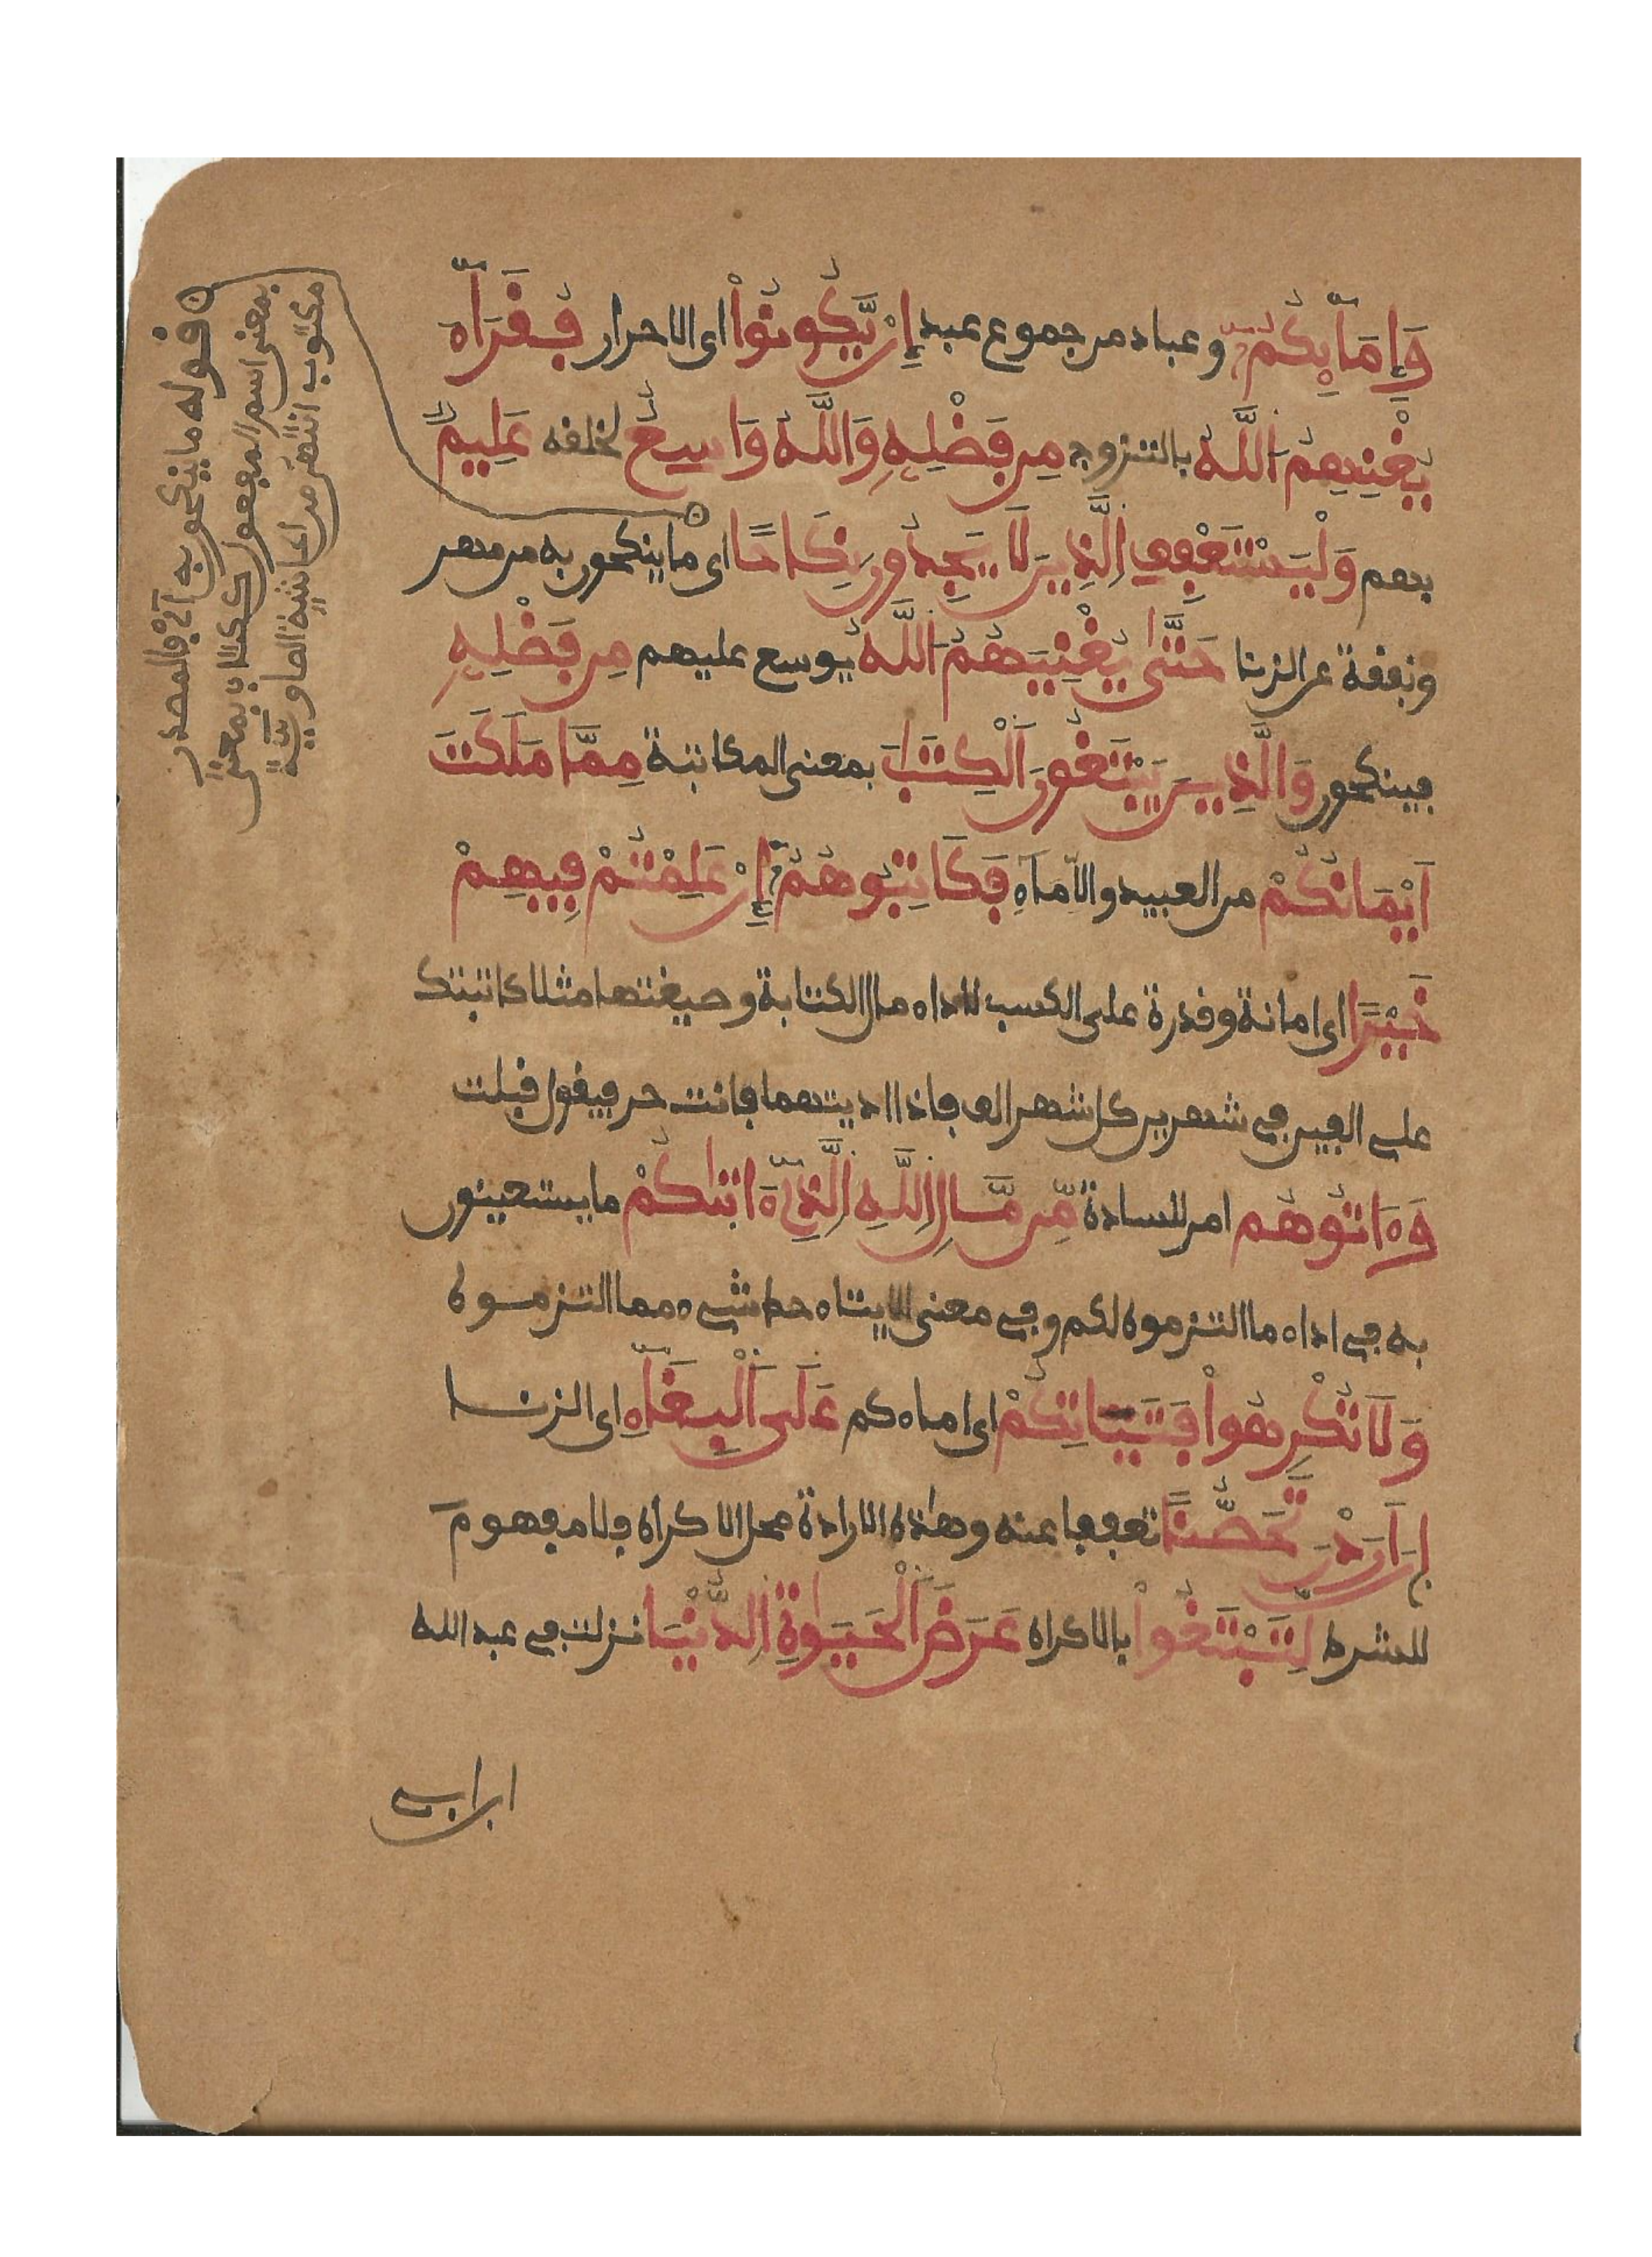 وَإِمَآئِكُمُۥٓ وعباد من جموع عبد إِنْ يَّكُونُواْ اى الاحرار فُقَرَآءَ
يُغْنِهِمُ اُللَّهُ بالتزوج مِن فَضْلِهِۦ وَاللَّهُ وَاسِعٌ لخلفه عَلِيمٌ
بهم وَلْيَسْتَعْفِفِ اِلَّذِينَ لَا يَجِدُونَ نِكَاحًا اى ما ينكحون به من مهر
ونفقة عن الزنا حَتَّىٰ يُغْنِيَهُمُ اُللَّهُ يوسع عليهم مِن فَضْلِهِۦ
فينكحون وَالَّذِينَ يَبْتَغُونَ اَلْكِتَٰبَ بمعنى المكاتبة مِمَّا مَلَكَتَ
اَيْمَانُكُمْ من العبيد والامآءِ فَكَاتِبُوهُمُۥٓ إِنْ عَلِمْتُمْ فِيهِمْ
خَيْرًا اى امانة وقدرة على الكسب لاداء مال الكتابة وصيغتها مثلا كاتبتك
على الفين فى شهرين كل شهر الف فاذا اديتهما فانت حر فيقول قبلت
وَءَاتُوهُم امر للسادة مِّن مَّالِ اِللَّهِ اِلَّذِىٓ ءَاتَىٰكُمْ ما يستعينون
به فى اداء ما التزموه لكم وفى معنى الايتاء حط شىء مما التزموه
وَلَا تُكْرِهُواْ فَتَيَاتِكُمْ اى اماءكم عَلَى اَلْبِغَآءِ اى الزنا
إِنَ اَرَدْنَ تَحَصُّنًا تعففا عنه وهٰذه الارادة محل الاكراه فلا مفهوم
للشرط لِّتَبْتَغُواْ بالاكراه عَرَضَ اَلْحَيَوٰةِ اِلدُّنْيَا نزلت فى عبد الله
ابن ابى
قوله ما ينكحون به اى فالمصدر
بمعنى اسم المفعول ككتاب بمعنى
مكتوب انتهى من حاشية الصاوى